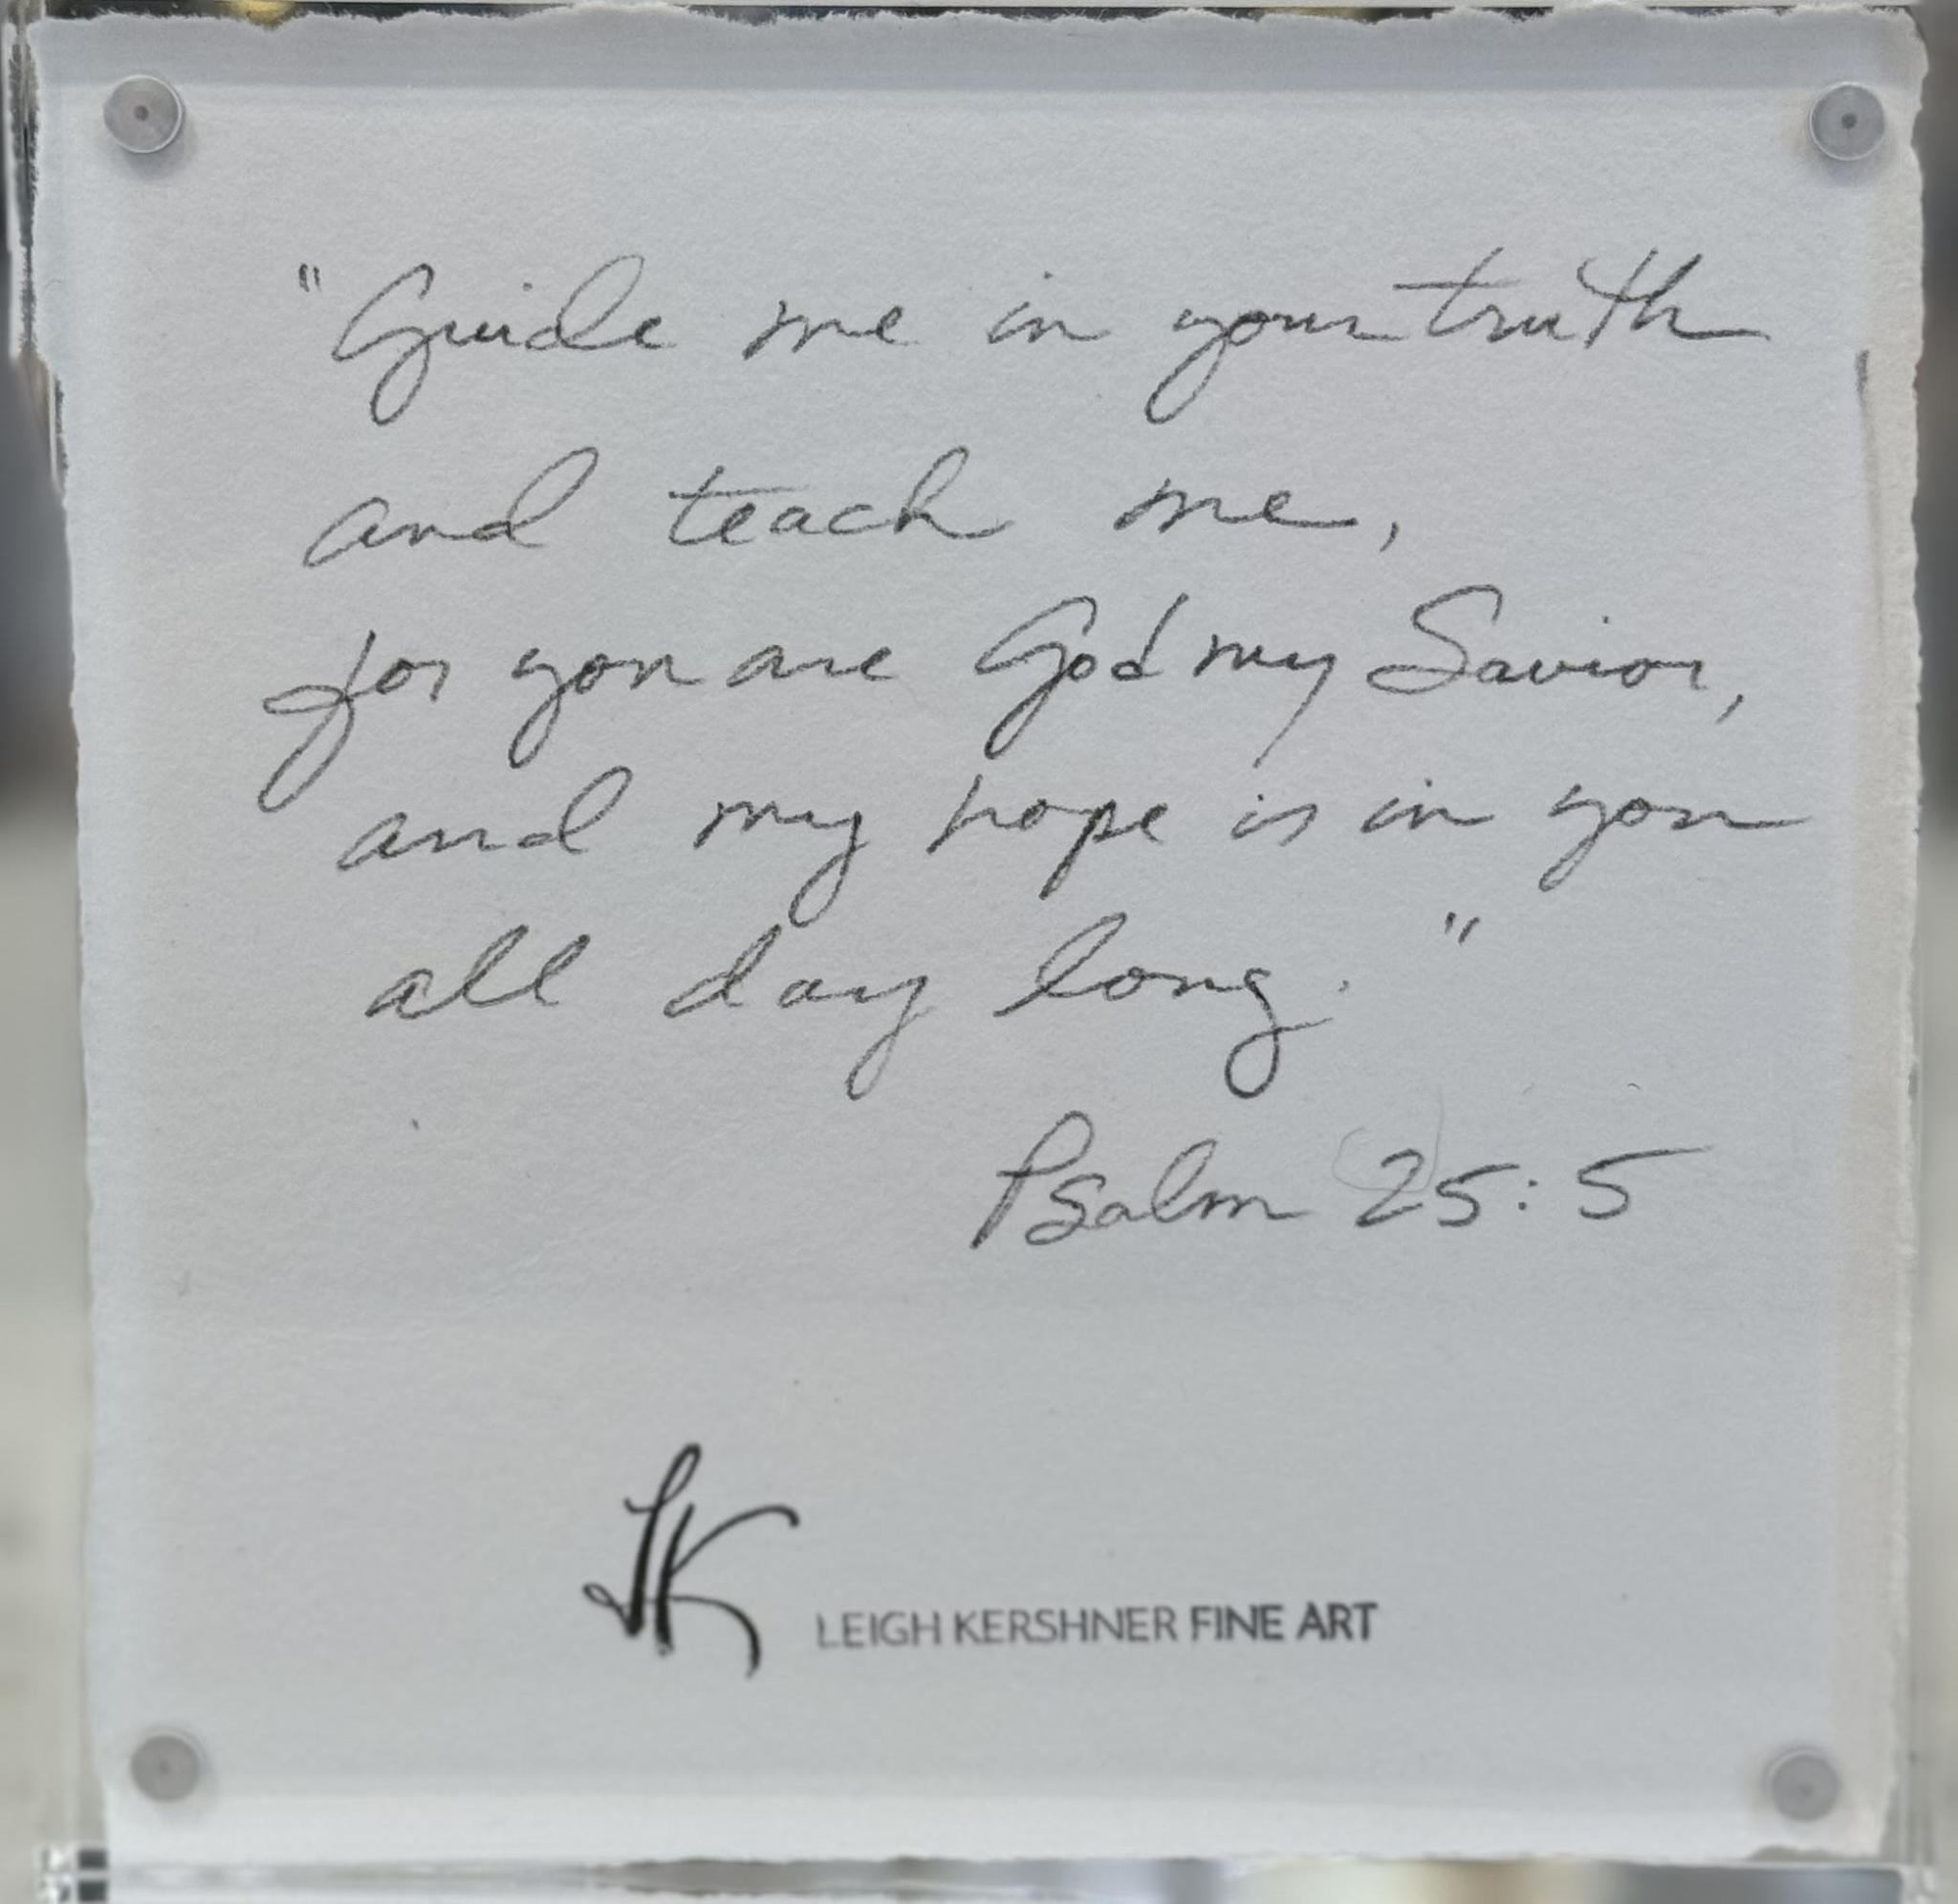 "Guide me in your truth
and teach me,
for you are God my Savior,
and my hope is in you
all day long."
Psalm 25:5
LK
LEIGH KERSHNER FINE ART